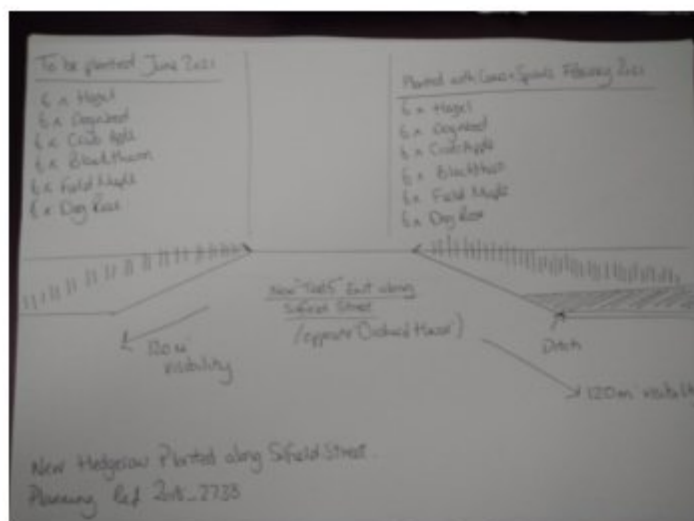 To be planted June 2021
6 x Hazel
6 x Dogwood
6 x Crab Apple
6 x Blackthorn
6 x Field Maple
6 x Dog Rose
Planted with Canes + Spirals February 2021
6 x Hazel
6 x Dogwood
6 x Crab Apple
6 x Blackthorn
6 x Field Maple
6 x Dog Rose
New Exit along
Street
(opposite Orchard House)
120m
visibility
Ditch
120m visibility
New Hedgerow Planted along Street.
Planning Ref 2018_2733